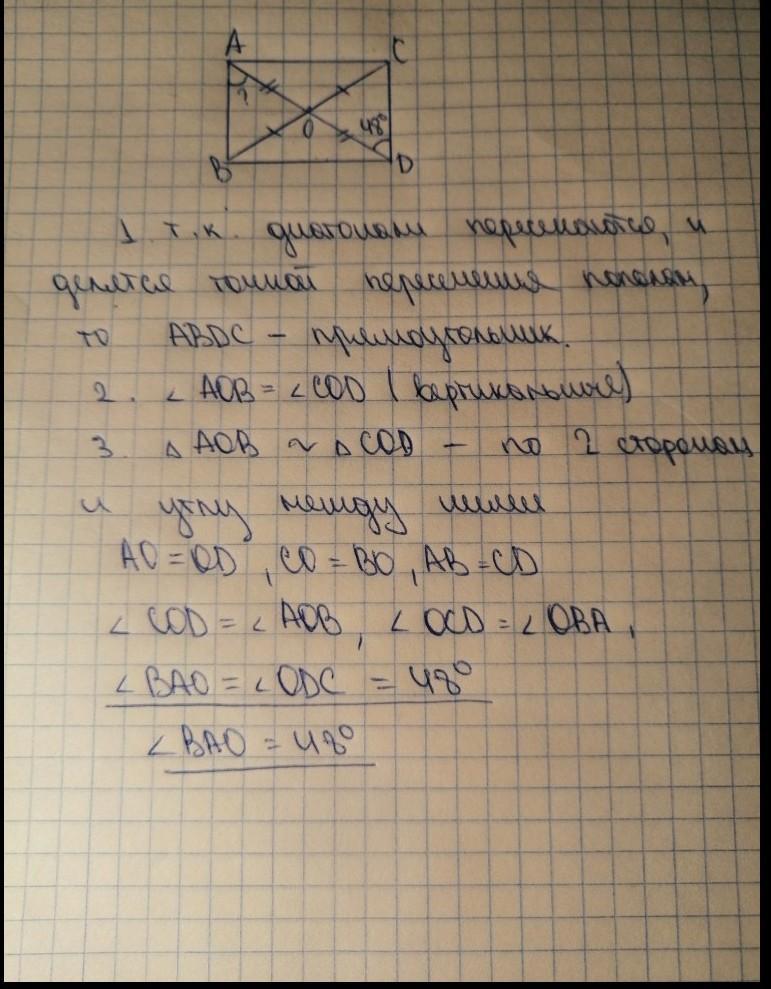 A C
? O 48°
B D
1. т.к. диагонали пересекаются, и
делятся точкой пересечения пополам,
то ABDC – прямоугольник.
2. ∠ AOB = ∠COD (вертикальные)
3. △ AOB ~ △ COD – по 2 сторонам
и углу между ними
AO = OD , CO = BO , AB = CD
∠ COD = ∠ AOB , ∠ OCD = ∠ OBA ,
∠ BAO = ∠ ODC = 48°
∠ BAO = 48°